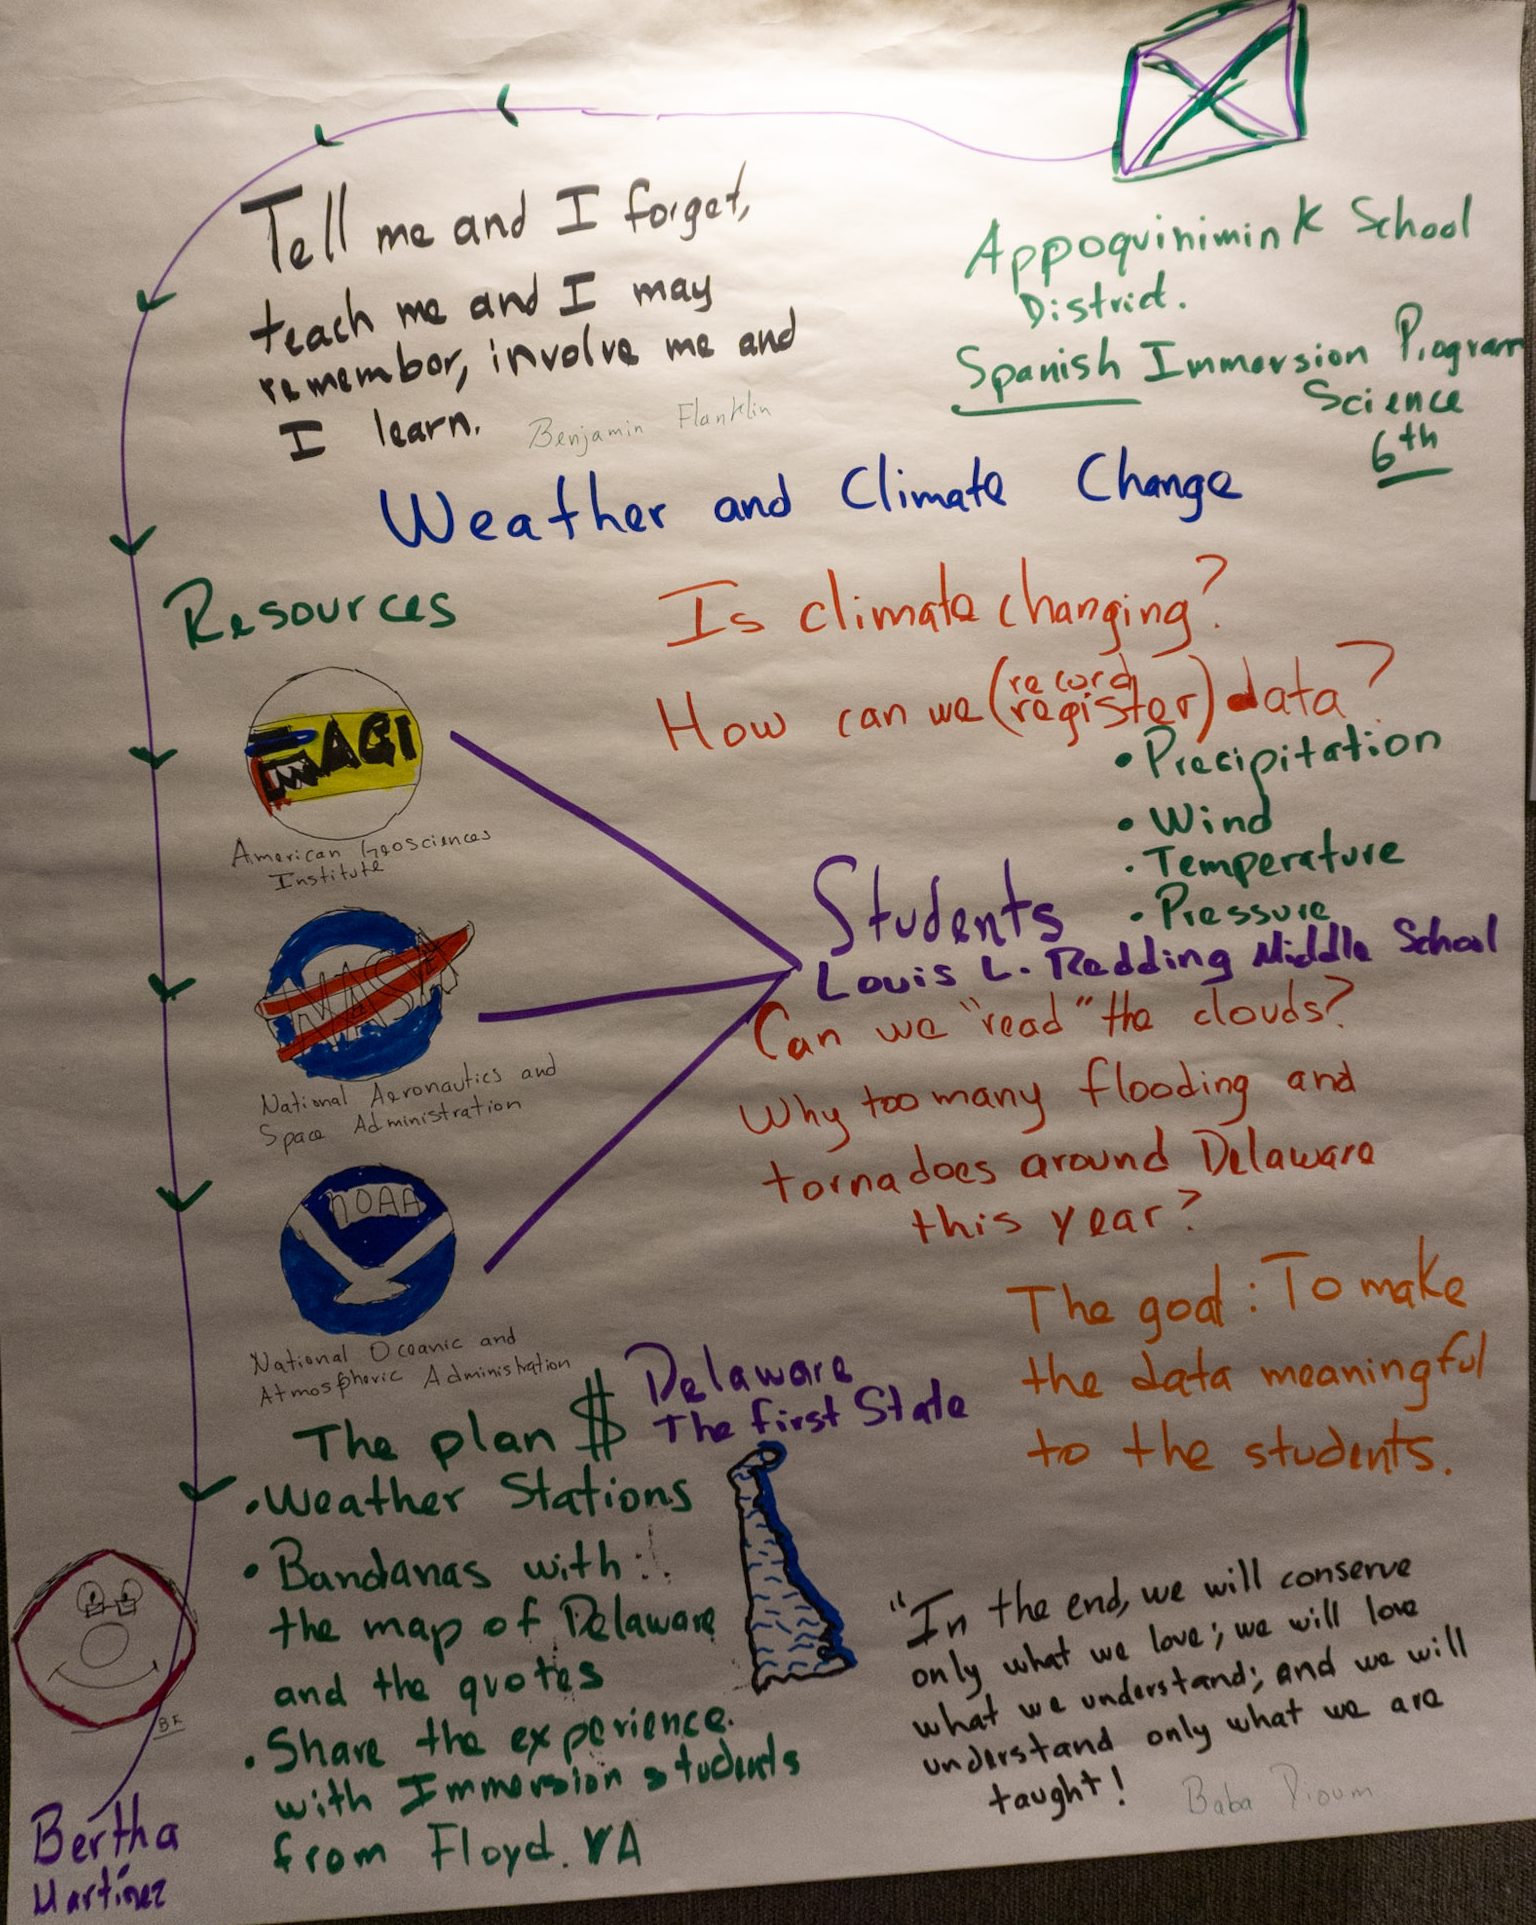 Tell me and I forget,
teach me and I may
remember, involve me and
I learn.
Benjamin Flanklin
Appoquinimink School
District.
Spanish Immersion Program
Science
6th
Weather and Climate Change
Resources
AGI
American Geosciences
Institute
NASA
National Aeronautics and
Space Administration
NOAA
National Oceanic and
Atmospheric Administration
Is climate changing?
How can we (record
register) data?
• Precipitation
• Wind
• Temperature
• Pressure
Students
Louis L. Redding Middle School
Can we "read" the clouds?
Why too many flooding and
tornadoes around Delaware
this year?
The goal: To make
the data meaningful
to the students.
The plan $
• Weather Stations
• Bandanas with
the map of Delaware
and the quotes
• Share the experience.
with Immersion students
from Floyd. VA
Delaware
The First State
"In the end, we will conserve
only what we love; we will love
what we understand; and we will
understand only what we are
taught!
Baba Dioum
BK
Bertha
Martínez